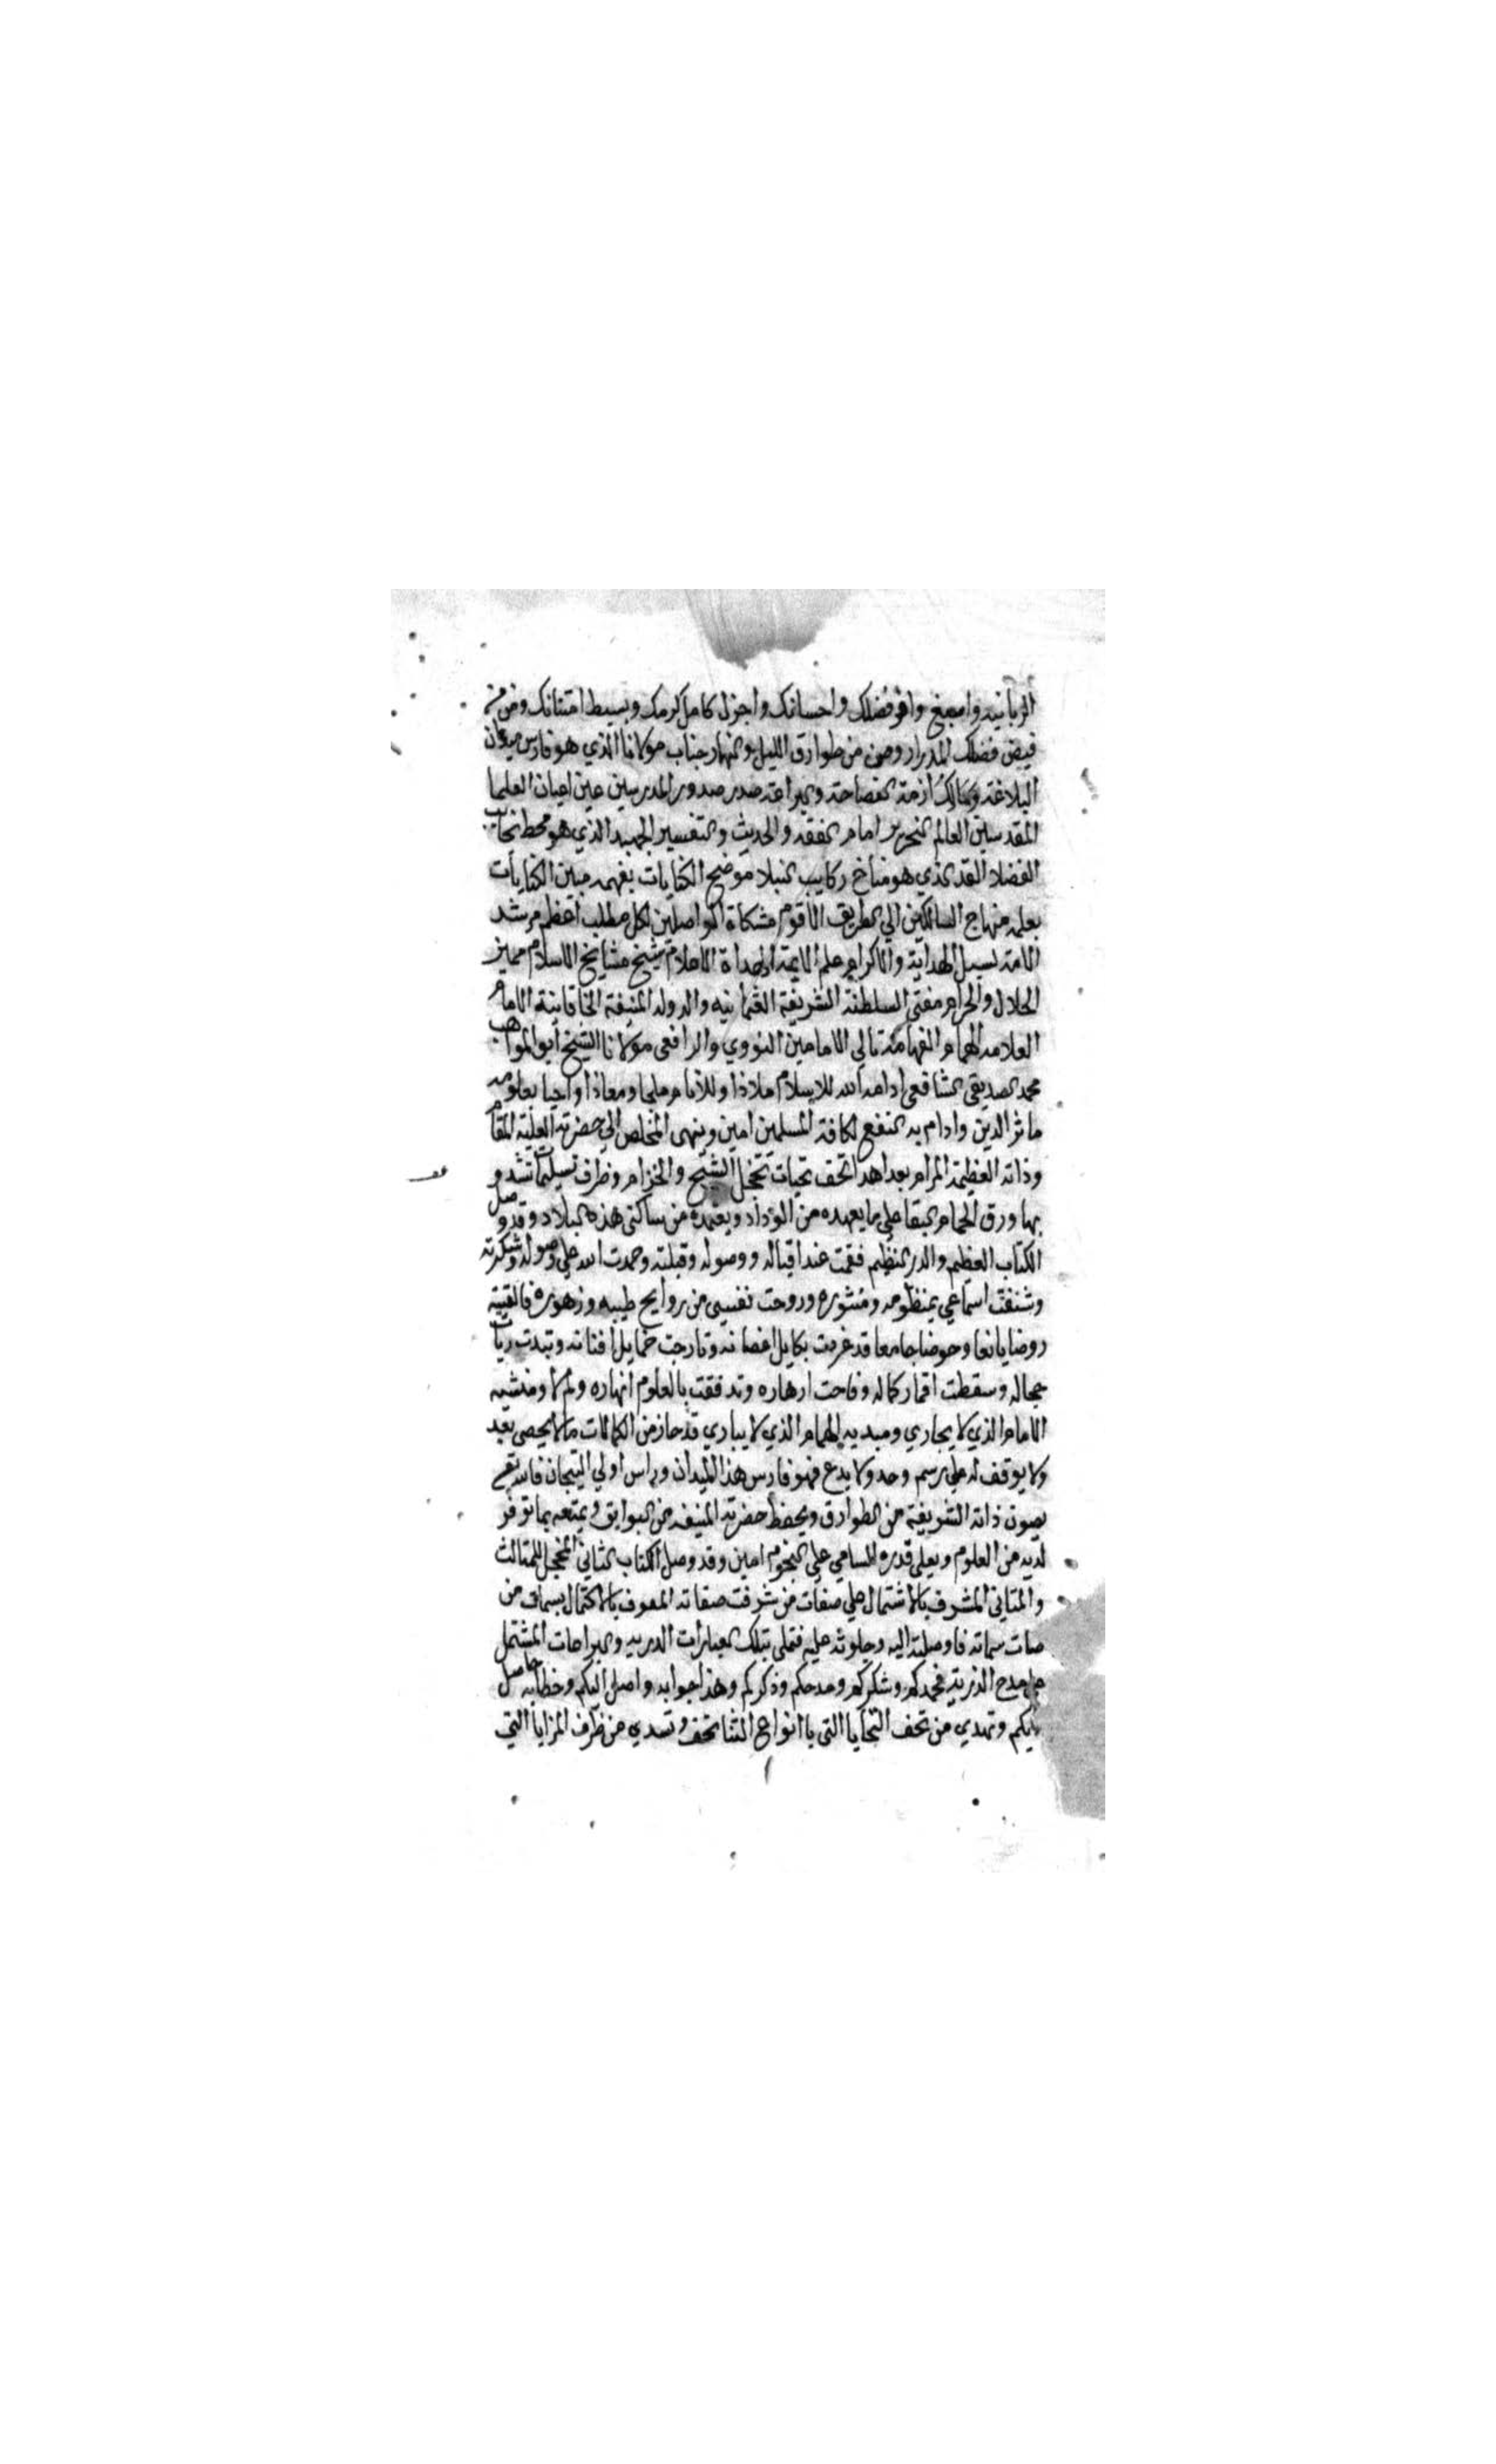 الربانيه وامبغ وافر فضلك واحسانك واجزل كامل كرمك وبسيط امتنانك ومن
فيض فضلك المدرار وصن من طوارق الليل والنهار جناب مولانا الذي هو فارس ميدان
البلاغة ومالك ازمة الفصاحة والبراعة صدر صدور المدرسين عين اعيان العلما
المقدسين العالم النحرير امام الفقه والحديث والتفسير الجهبد الذي هو محط نجايب
الفضلا القد الذي هو مناخ ركايب النبلا موضح الكنايات بفهمه مبين الكنايات
بعلمه منهاج السالكين الي الطريق الاقوم مشكاة الواصلين لكل مطلب اعظم مرشد
الامة لسبيل الهداية والاكرام علم الايمة الهداة الاعلام شيخ مشايخ الاسلام مميز
الحلال والحرام مفتي السلطنة الشريفة العثمانيه والدولة المنيفة الخاقانية الامام
العلامة الهمام الفهامة تالي الامامين النووي والرافعي مولانا الشيخ ابو المواهب
محمد الصديقي الشافعي ادامه الله للاسلام ملاذا وللانام ملجا ومعاذا واحيا بعلومه
ماثر الدين وادام به النفع لكافة المسلمين امين وينهي المخلص الي حضرته العلية المقام
وذاته العظيمة المرام بعد اهدا تحف تحيات تخجل الشيح والخزام وظرف تسليمات تشدو
بها ورق الحمام البقا علي ما يعهده من الوداد ويعتمده من ساكني هذه البلاد وقد وصل
الكتاب العظيم والدر النظيم فقمت عند اقباله ووصوله وقبلته وحمدت الله علي وصوله وشكرته
وشنفت اسماعي بمنظومه ومنثوره وروحت نفسي من روايح طيبه وزهوره فالفيته
روضا يانعا وحوضا جامعا قد غردت بلابل اغصانه وتارجت خمايل افنانه وتبدت ريات
جماله وسقطت اقمار كماله وفاحت ازهاره وتدفقت بالعلوم انهاره ولم لا ومنشيه
الامام الذي لا يجاري ومبديه الهمام الذي لا يباري قد حاز من الكمالات ما لا يحصي بعد
ولا يوقف له علي رسم وحد ولا بدع فهو فارس هذا الميدان وراس اولي التيجان فالله تعالى
يصون ذاته الشريفة من الطوارق ويحفظ حضرته المنيفه من البوايق ويمتعه بما توفر
لديه من العلوم ويعلي قدره السامي علي النجوم امين وقد وصل الكتاب الثاني المخجل للمثالث
والمثاني المشرف بالاشتمال علي صفات من شرفت صفاته المعوف بالاكتمال بسمات من
سمات سماته فاوصلته اليه وجلوته عليه فتملي بتلك العبارات الدريه والبراعات المشتمل
علي مدح الذرية فحمدكم وشكركم ومدحكم وذكركم وهذا جوابه واصل اليكم وخطابه حاصل
لديكم وتهدي من تحف التحايا التي باانواع الثنا تحف وتسدي من ظرف المزايا التي